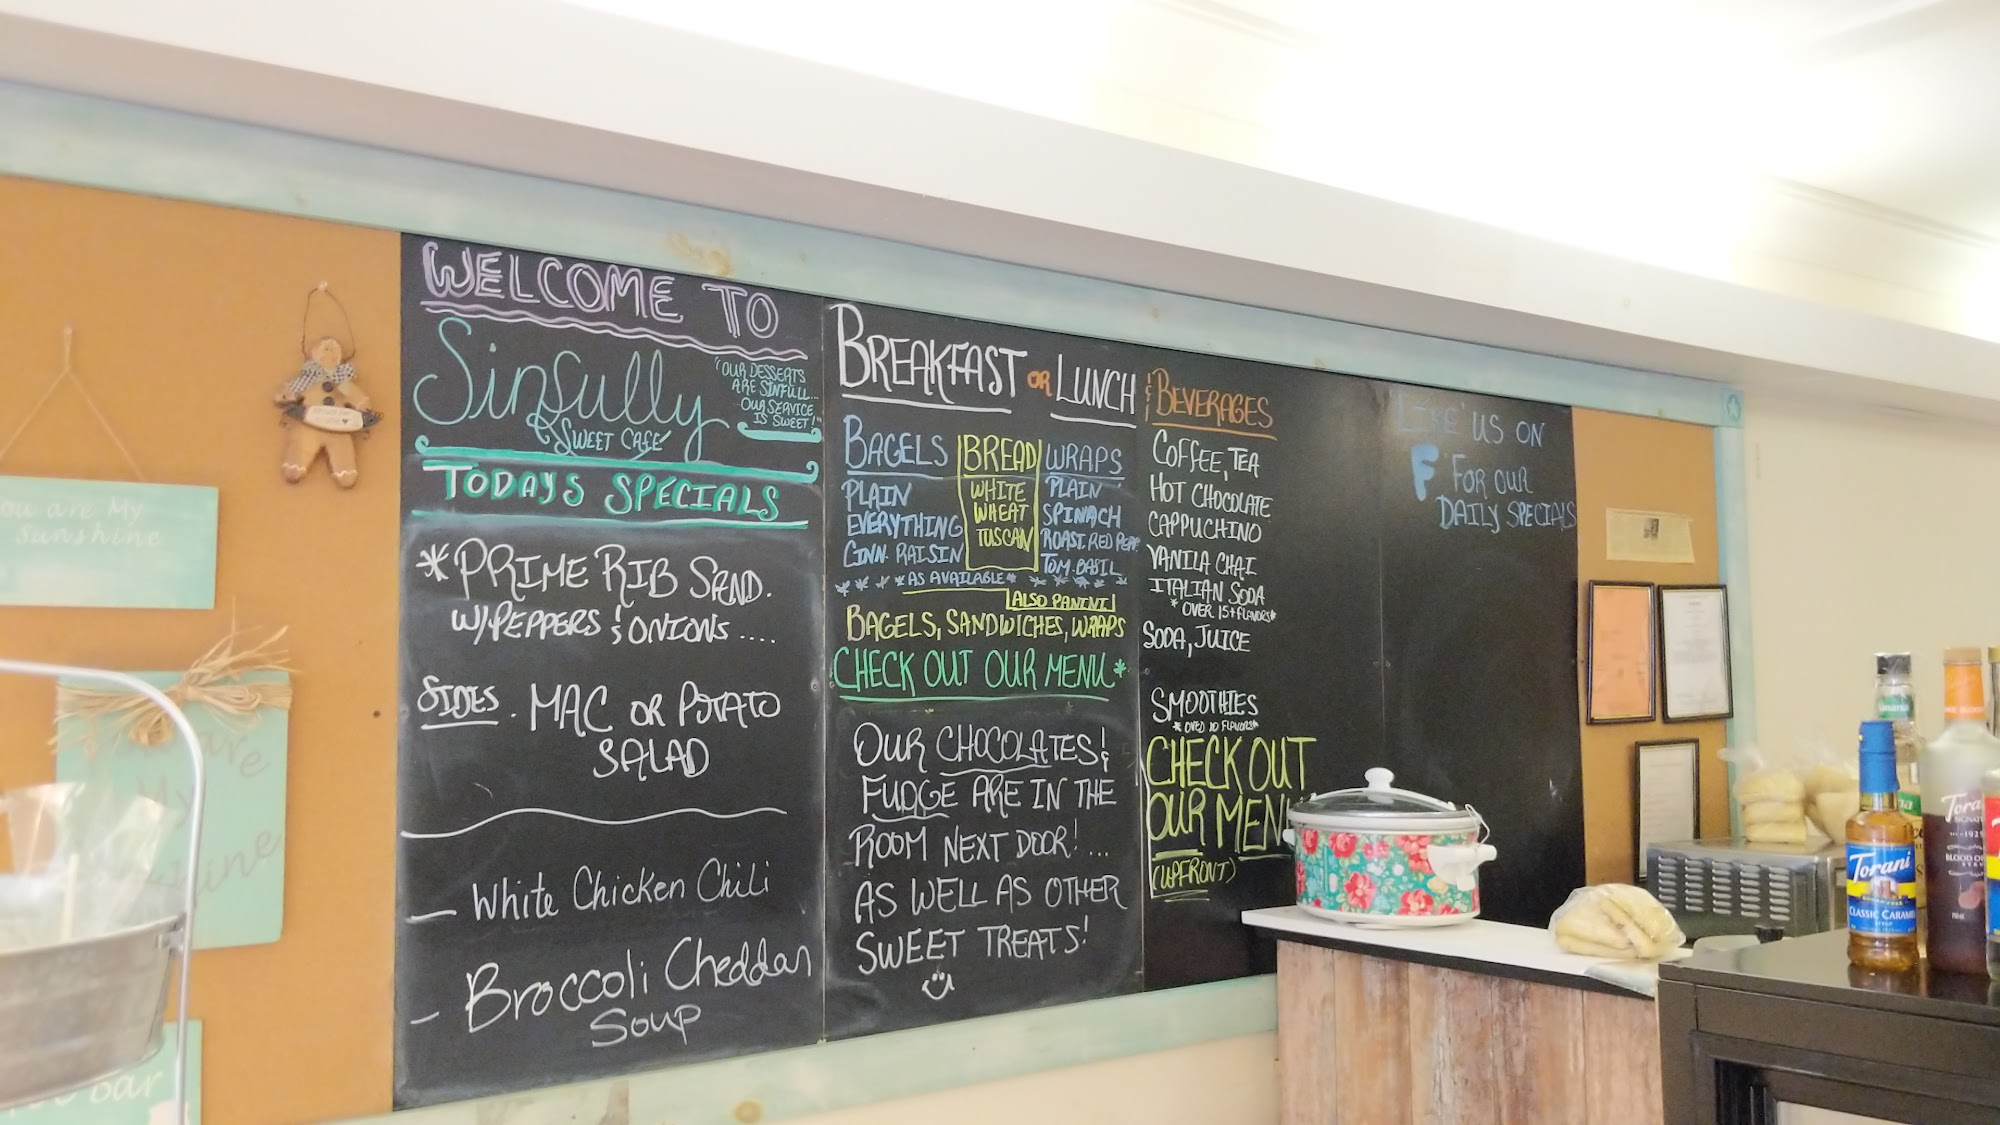 WELCOME TO
Sinfully
SWEET CAFE
"OUR DESSERTS
ARE SINFULL...
OUR SERVICE
IS SWEET!"
TODAYS SPECIALS
*PRIME RIB SAND.
W/PEPPERS & ONIONS ....
SIDES. MAC OR POTATO
SALAD
- White Chicken Chili
- Broccoli Cheddar
Soup
BREAKFAST OR LUNCH
BAGELS
PLAIN
EVERYTHING
CINN. RAISIN
BREAD
WHITE
WHEAT
TUSCAN
WRAPS
PLAIN
SPINACH
ROAST. RED PEPP.
TOM. BASIL
*AS AVAILABLE*
ALSO PANINI
BAGELS, SANDWICHES, WRAPS
CHECK OUT OUR MENU*
OUR CHOCOLATES &
FUDGE ARE IN THE
ROOM NEXT DOOR! ...
AS WELL AS OTHER
SWEET TREATS!
& BEVERAGES
COFFEE, TEA
HOT CHOCOLATE
CAPPUCHINO
VANILA CHAI
ITALIAN SODA
*OVER 15+ FLAVORS*
SODA, JUICE
SMOOTHIES
*OVER 10 FLAVORS*
CHECK OUT
OUR MENU
(UPFRONT)
LIKE US ON
F FOR OUR
DAILY SPECIALS
You are My
Sunshine
are
My
shine
Bar
Torani
CLASSIC CARAMEL
Torani
SIGNATURE
1925
BLOOD OR